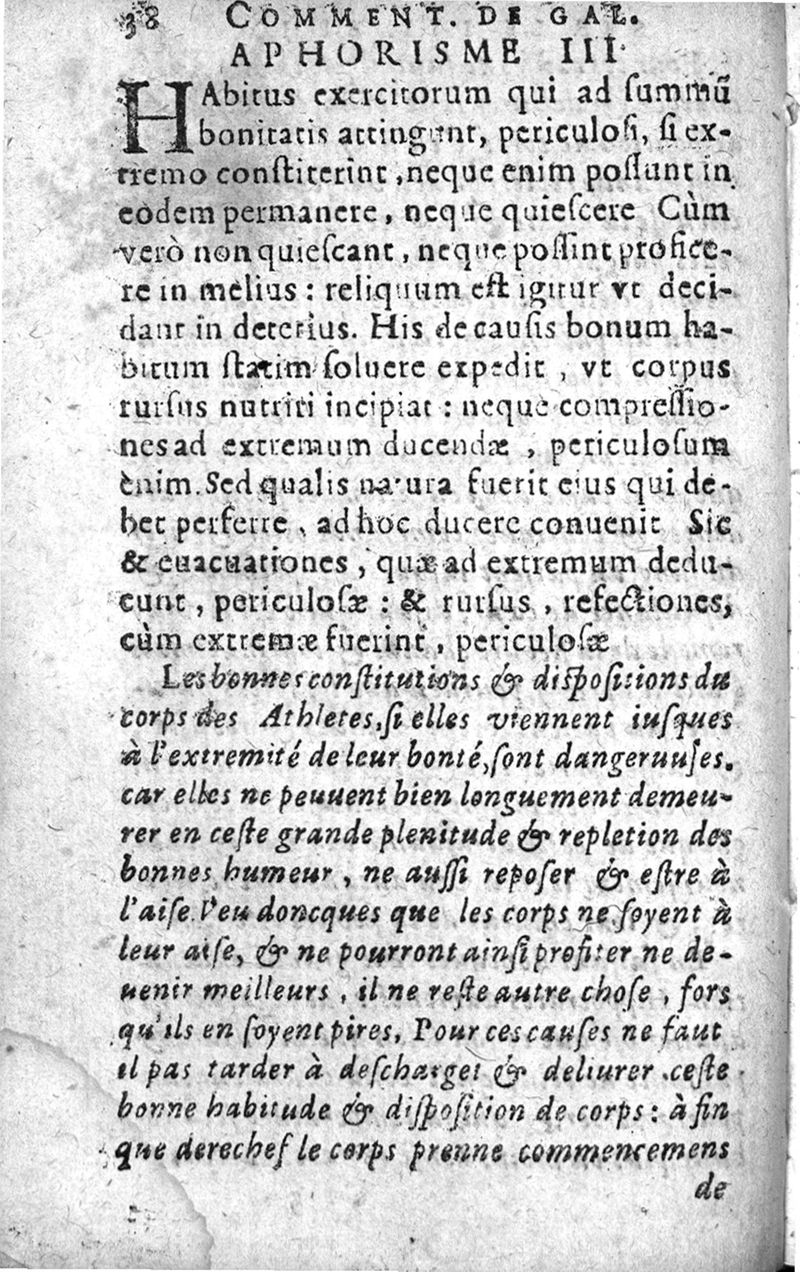 38 COMMENT. DE GAL.
APHORISME III.
HAbitus exercitorum qui ad ſummū
bonitatis attingunt, periculoſi, ſi ex-
tremo conſtiterint, neque enim poſſunt in
eodem permanere, neque quieſcere Cùm
verò non quieſcant, neque poſſint profice-
re in melius : reliquum eſt igitur vt deci-
dant in deterius. His de cauſis bonum ha-
bitum ſtatim ſoluere expedit, vt corpus
rurſus nutriri incipiat : neque compreſſio-
nes ad extremum ducendæ, periculoſum
enim. Sed qualis natura fuerit eius qui de-
bet perferre, ad hoc ducere conuenit Sic
& euacuationes, quæ ad extremum dedu-
cunt, periculoſæ : & rurſus, refectiones,
cùm extremæ fuerint, periculoſæ
Les bonnes conſtitutions & diſpoſitions du
corps des Athletes, ſi elles viennent iuſques
à l'extremité de leur bonté, ſont dangeruuſes.
car elles ne peuuent bien longuement demeu-
rer en ceſte grande plenitude & repletion des
bonnes humeur, ne auſſi repoſer & eſtre à
l'aiſe. Veu doncques que les corps ne ſoyent à
leur aiſe, & ne pourront ainſi profiter ne de-
uenir meilleurs, il ne reſte autre choſe, fors
qu'ils en ſoyent pires. Pour ces cauſes ne faut
il pas tarder à deſcharger & deliurer ceſte
bonne habitude & diſpoſition de corps : à fin
que derechef le corps prenne commencemens
de